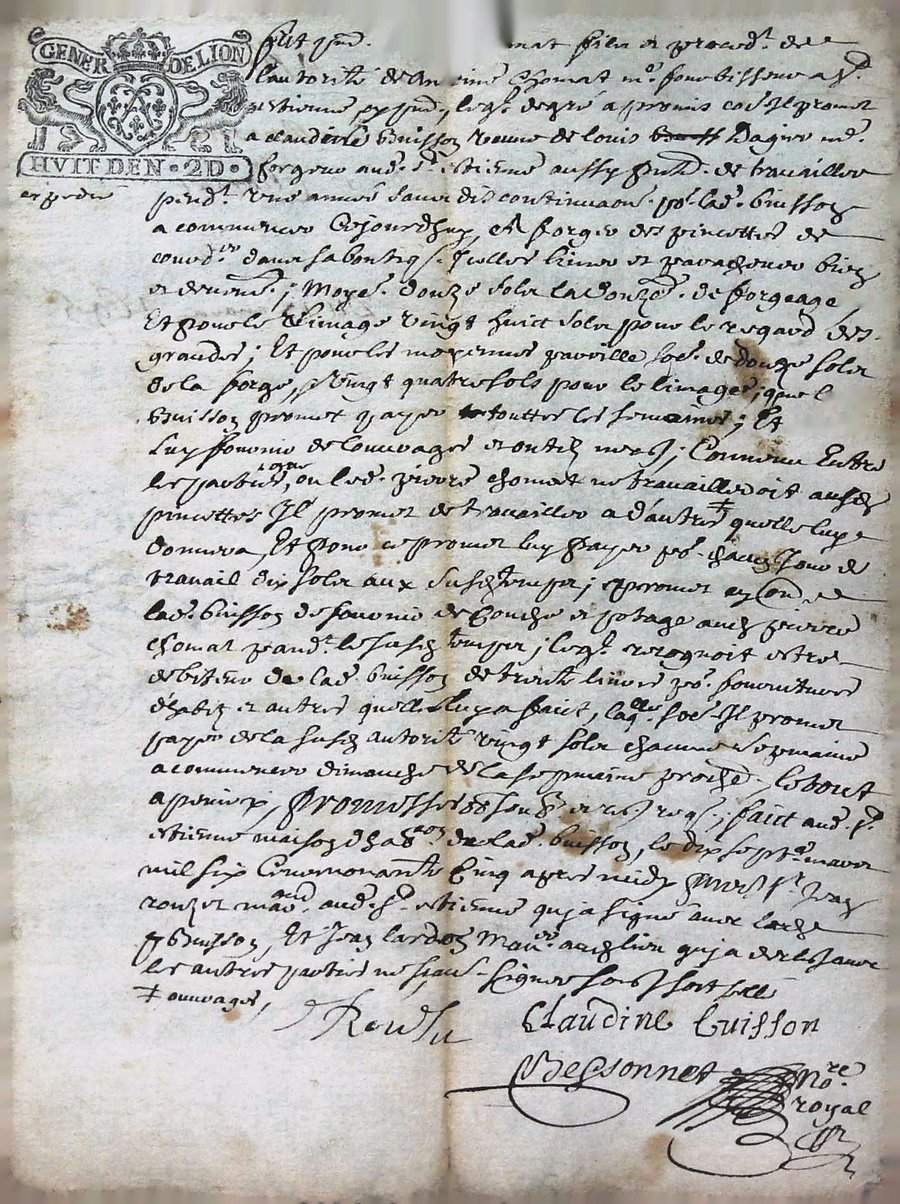 GENER DE LION
HVIT DEN · 2D ·
expedié
fut pnt. mat filz et proced. de
l'autorité de An oine Chomat me. fourbisseur a St.
estienne, leql. de gré a promis co.e Il promet
a Claudine Buisson veuve de louis Dagier me.
forgeur aud. St. estienne aussy pnte. de travailler
pendt. une année sans discontinuaon. pr. lad. buisson
a commencer Cejourdhuy, et forger des pincettes de
dans sa boutiq. Icelles limer et parachever bien
et deuemt.; Moyent. douze solz la douzne. de forgeage
Et pour le limage vingt huict solz pour le regard des
grandes; Et pour les moyennes pareille soe. de douze solz
de la forge, & vingt quatre sols pour le limage; que l
buisson promet payer touttes les semaines; Et
luy fournir de louvrages et outilz; Convenu Entre
les parties, que ou led. pierre chomat ne travailleroit ausd.
pincettes Il promet de travailler a d'autres ‡ quelle luy
donnera, Et pour ce promet luy payer pr. chacun Jour de
travail dix solz aux susd. temps; promet
lad. buisson de fournir de Couche et potage aud. pierre
chomat pendt. le susd. temps; leql. recognoit estre
debiteur de lad. buisson de trente livres pr. fournitures
d'habitz et autres quelle luy a faict, laqlle. soe. Il promet
payer de la susd. autorité vingt solz chacune sepmaine
a commencer dimanche de la sepmaine proche, le tout
a peine &, promesses, faict aud. St.
estienne maison d'ha.on de lad. buisson, le dix sept.e mars
mil six Cent nonante Cinq apres midy pnts. sr. Jean
rouzet mar. aud. St. estienne qui a signé avec lad.
buisson, Et Jean lardon aud. lieu
les autres parties ne sçavt. signer
‡ ouvrages,
Claudine Buisson
Bessonnet no.re
royal